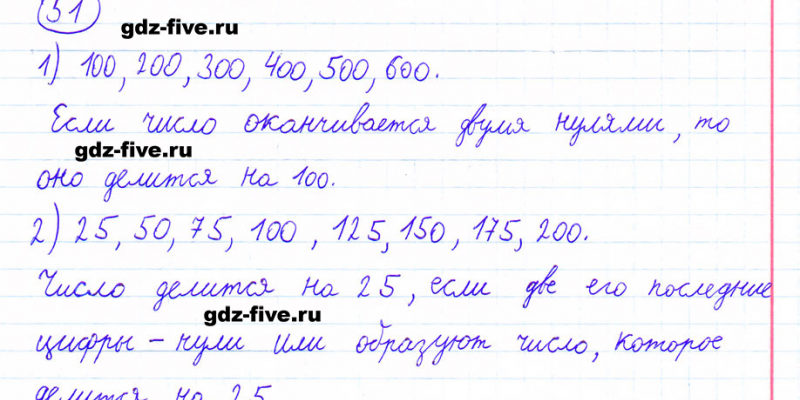 51
gdz-five.ru
1) 100, 200, 300, 400, 500, 600.
Если число оканчивается двумя нулями, то
gdz-five.ru
оно делится на 100.
2) 25, 50, 75, 100, 125, 150, 175, 200.
Число делится на 25, если две его последние
gdz-five.ru
цифры - нули или образуют число, которое
делится на 25